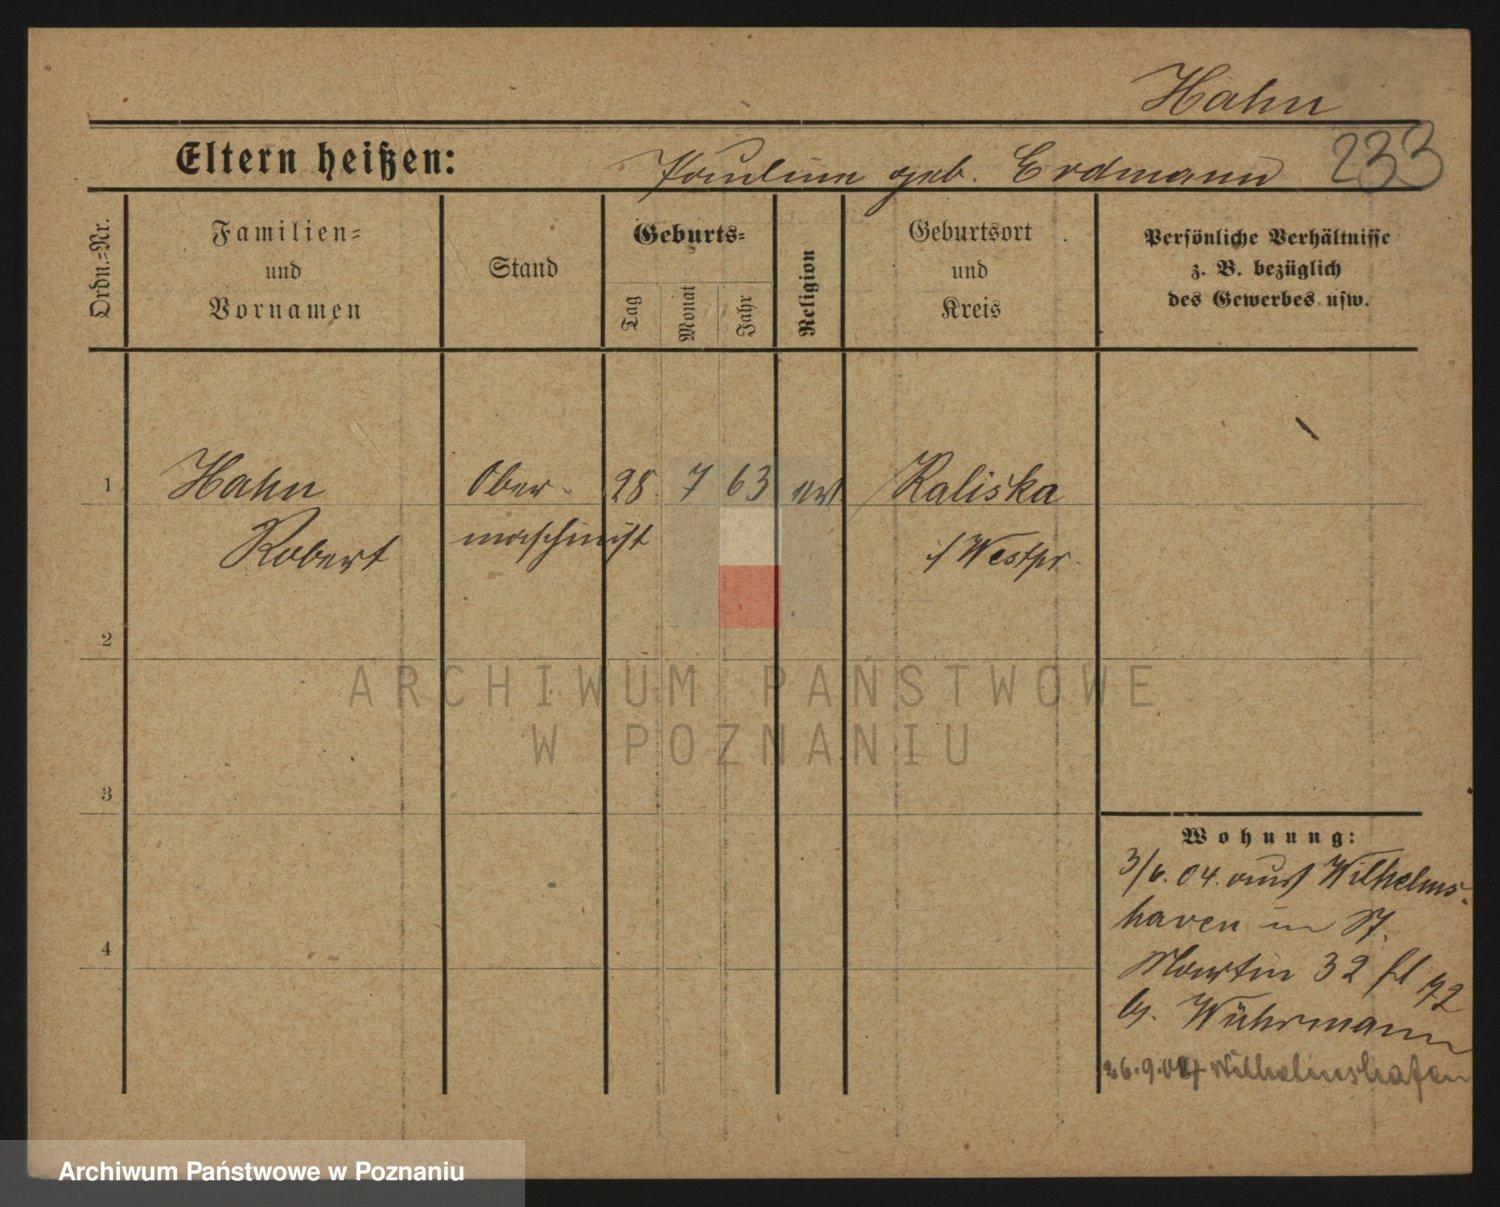 Hahn
233
Eltern heißen: Pauline geb. Erdmann
Ordn.-Nr.
Familien-
und
Vornamen
Stand
Geburts-
Tag
Monat
Jahr
Religion
Geburtsort
und
Kreis
Persönliche Verhältnisse
z. B. bezüglich
des Gewerbes usw.
1 Hahn Ober- 28. 7 63 Kaliska
Robert maschinist i/Westpr.
2
3
4
Wohnung:
3/6. 04. aus Wilhelms-
haven in St.
Martin 32
b. Wührmann
26.9.04 Wilhelmshafen
ARCHIWUM PAŃSTWOWE
W POZNANIU
Archiwum Państwowe w Poznaniu